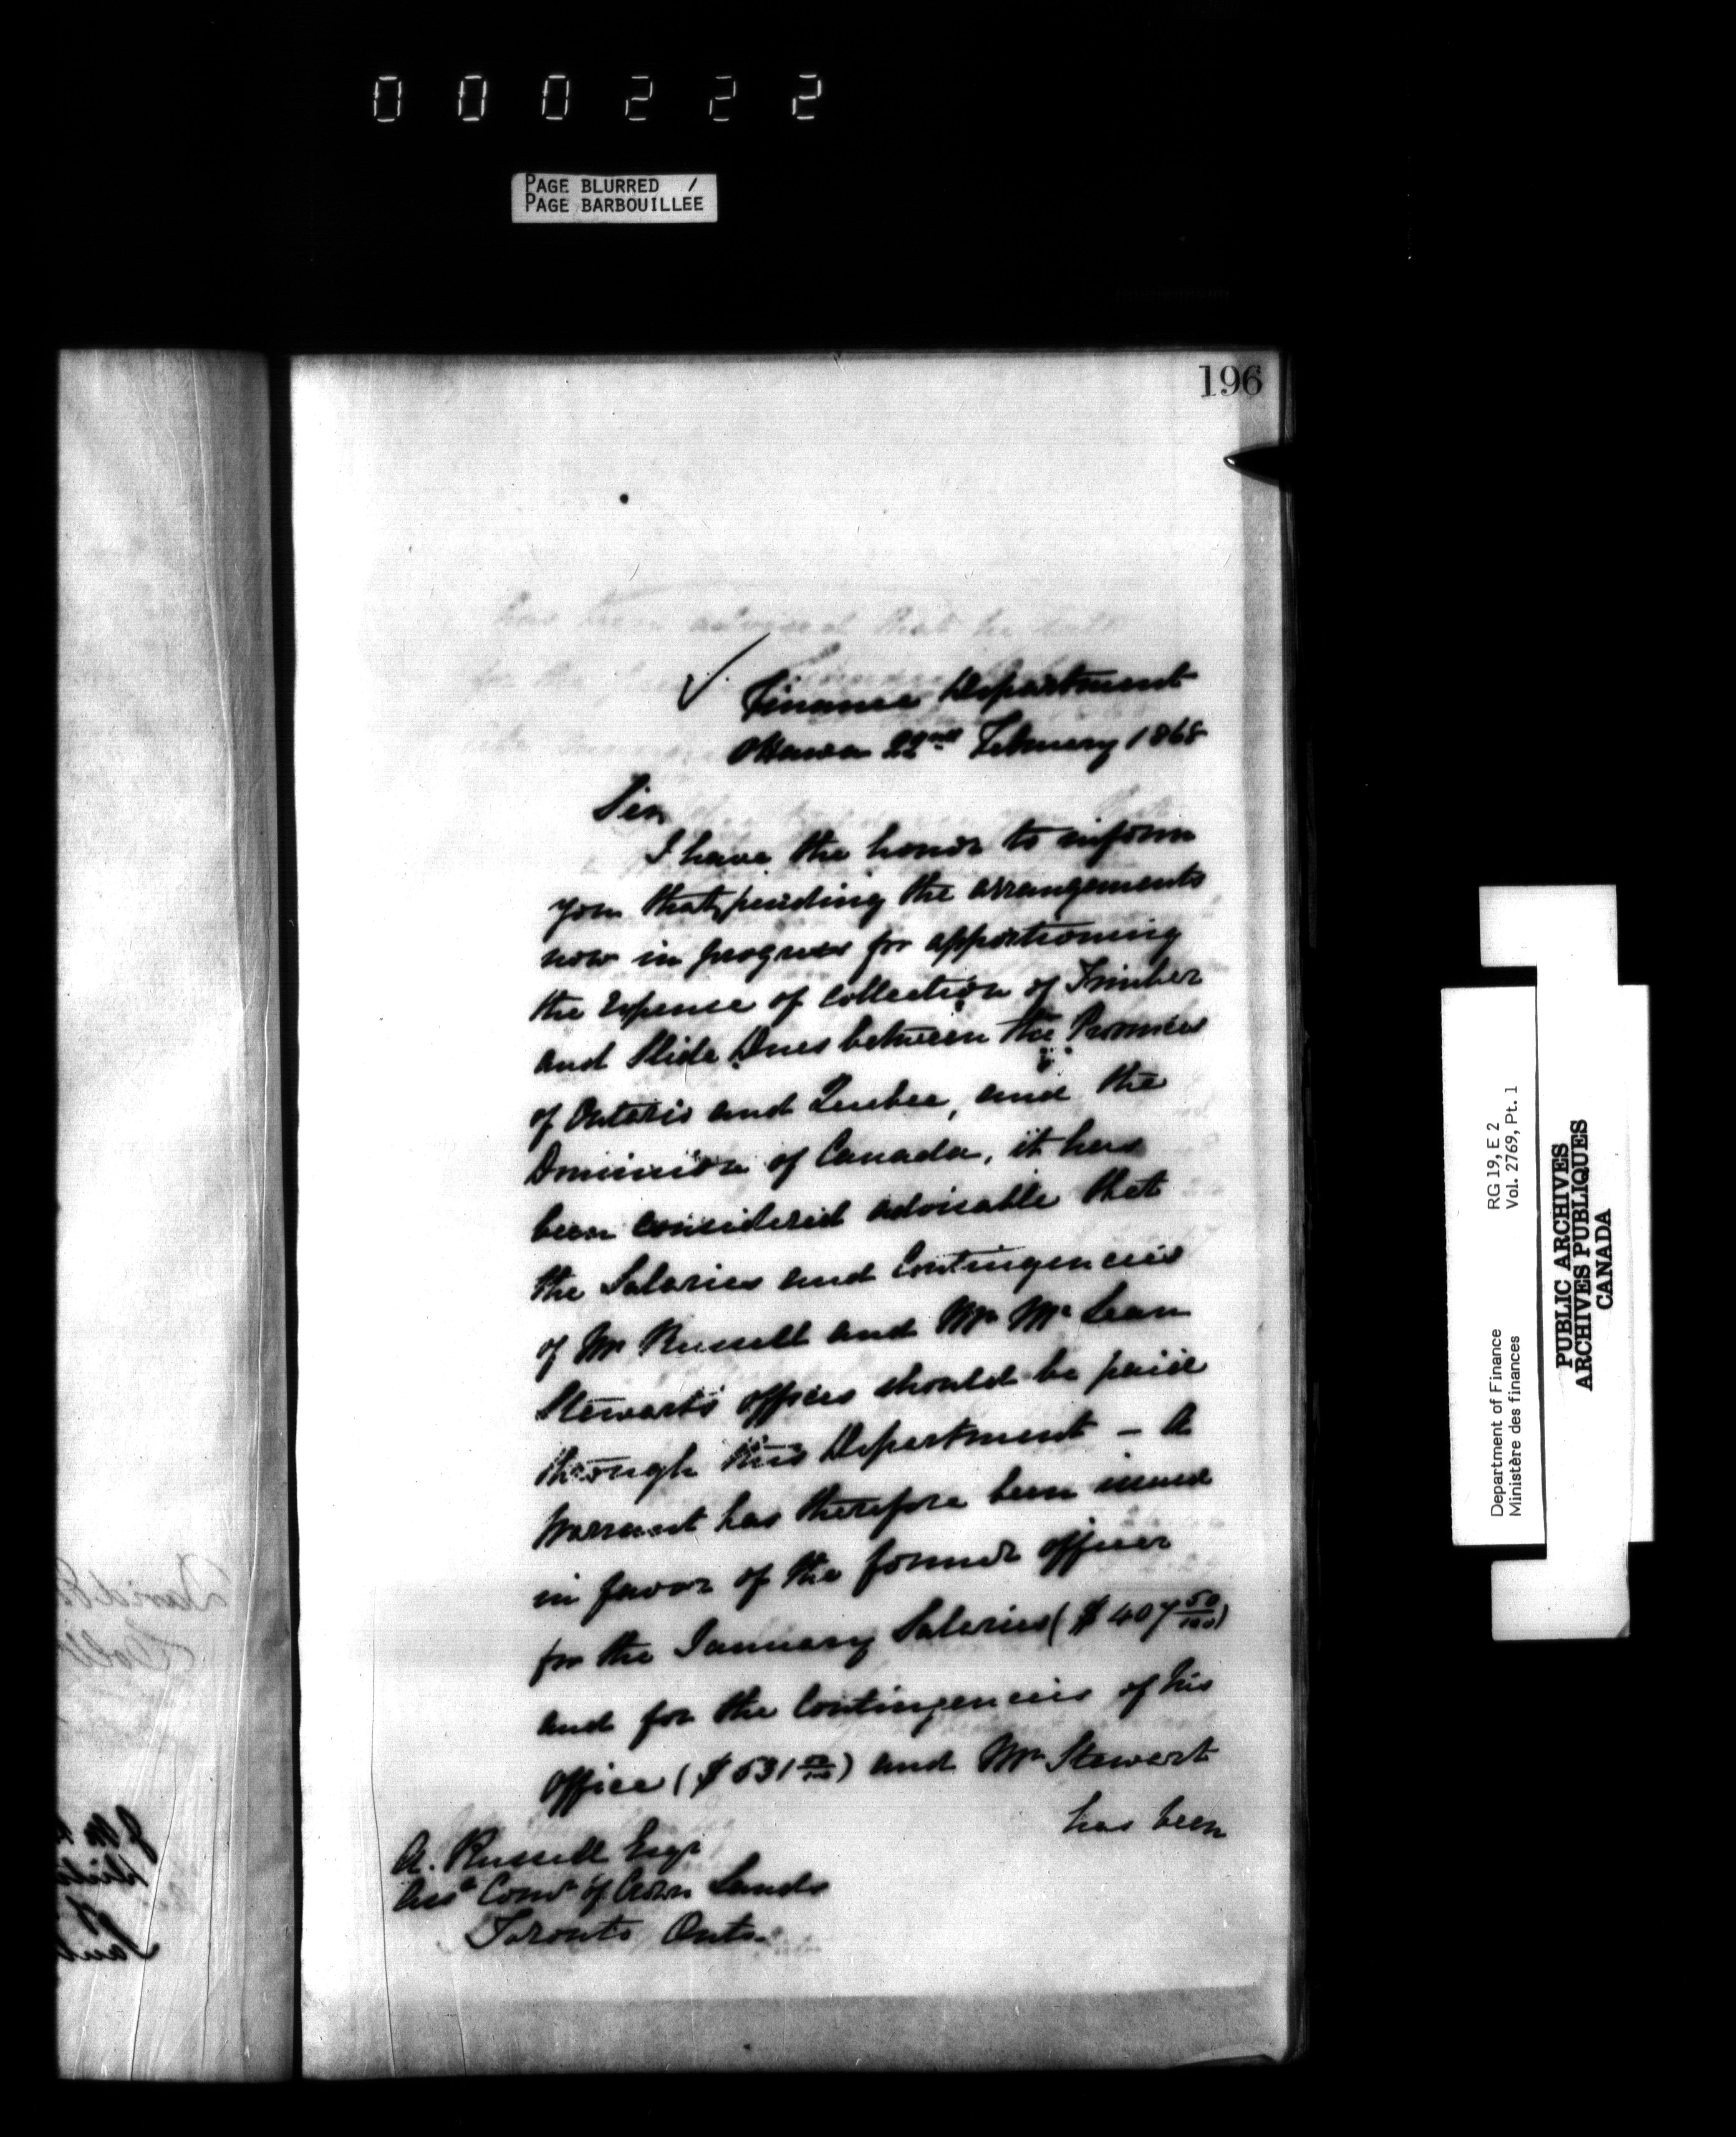 000222
PAGE BLURRED /
PAGE BARBOUILLÉE
196
Finance Department
Ottawa 22nd February 1868
Sir
I have the honor to inform
you that, pending the arrangements
now in progress for apportioning
the Expense of Collection of Timber
and Slide Dues between the Provinces
of Ontario and Quebec, and the
Dominion of Canada, it has
been considered advisable that
the Salaries and Contingencies
of Mr Russell and Mr McLean
Stewarts offices should be paid
through this Department – A
Warrant has therefore been issued
in favor of the former officer
for the January Salaries ($407 50/100)
and for the Contingencies of his
Office ($531 /100) and Mr Stewart
has been
A. Russell Esqr
Asst Comr of Crown Lands
Toronto Onto.
Department of Finance RG 19, E 2
Ministère des finances Vol. 2769, Pt. 1
PUBLIC ARCHIVES
ARCHIVES PUBLIQUES
CANADA